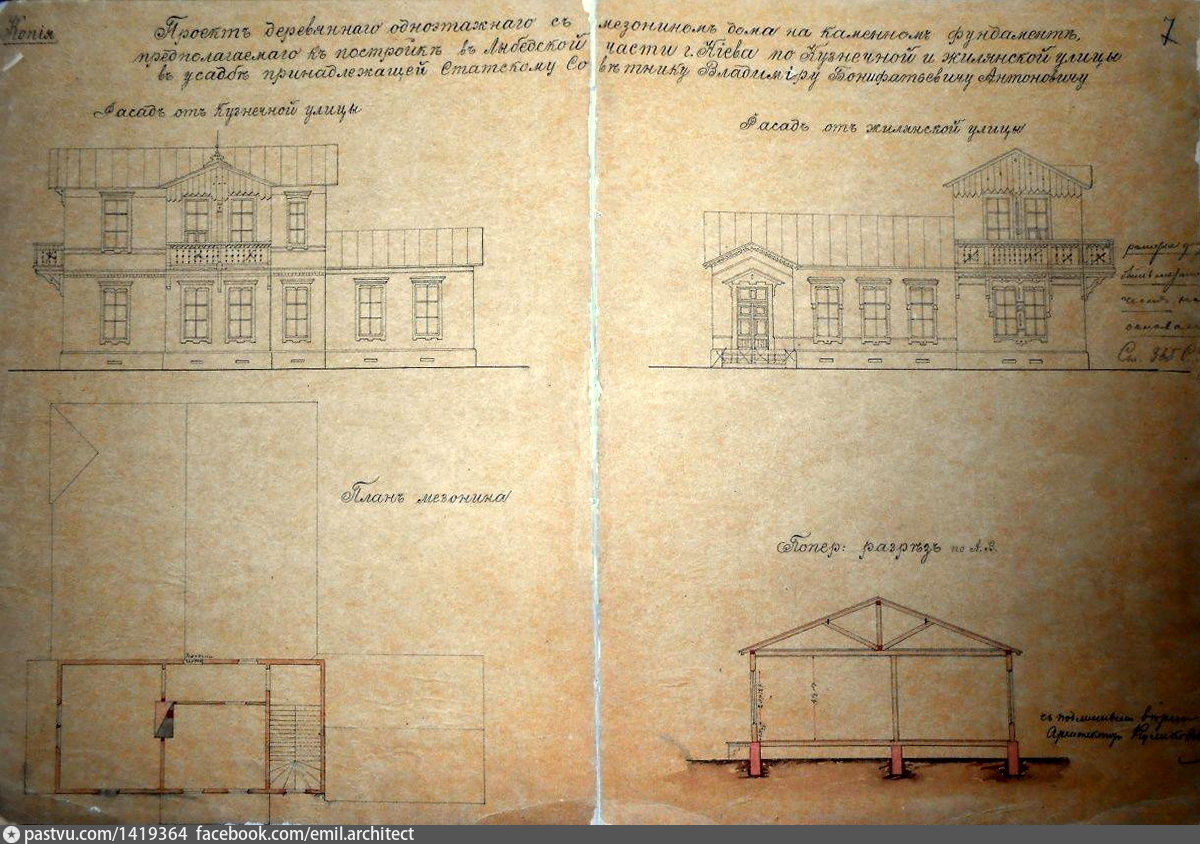 Копія
7
Проектъ деревяннаго одноэтажнаго съ мезониномъ дома на каменномъ фундаментѣ,
предполагаемаго къ постройкѣ въ Лыбедской части г. Кіева по Кузнечной и жилянской улицы
въ усадьбѣ принадлежащей Статскому Совѣтнику Владиміру Бонифатьевичу Антоновичу
Фасадъ отъ Кузнечной улицы
Фасадъ отъ жилянской улицы
См. 365
Планъ мезонина
Попер: разрѣзъ по А.В.
съ подлиннымъ вѣрно
Архитекторъ
pastvu.com/1419364 facebook.com/emil.architect